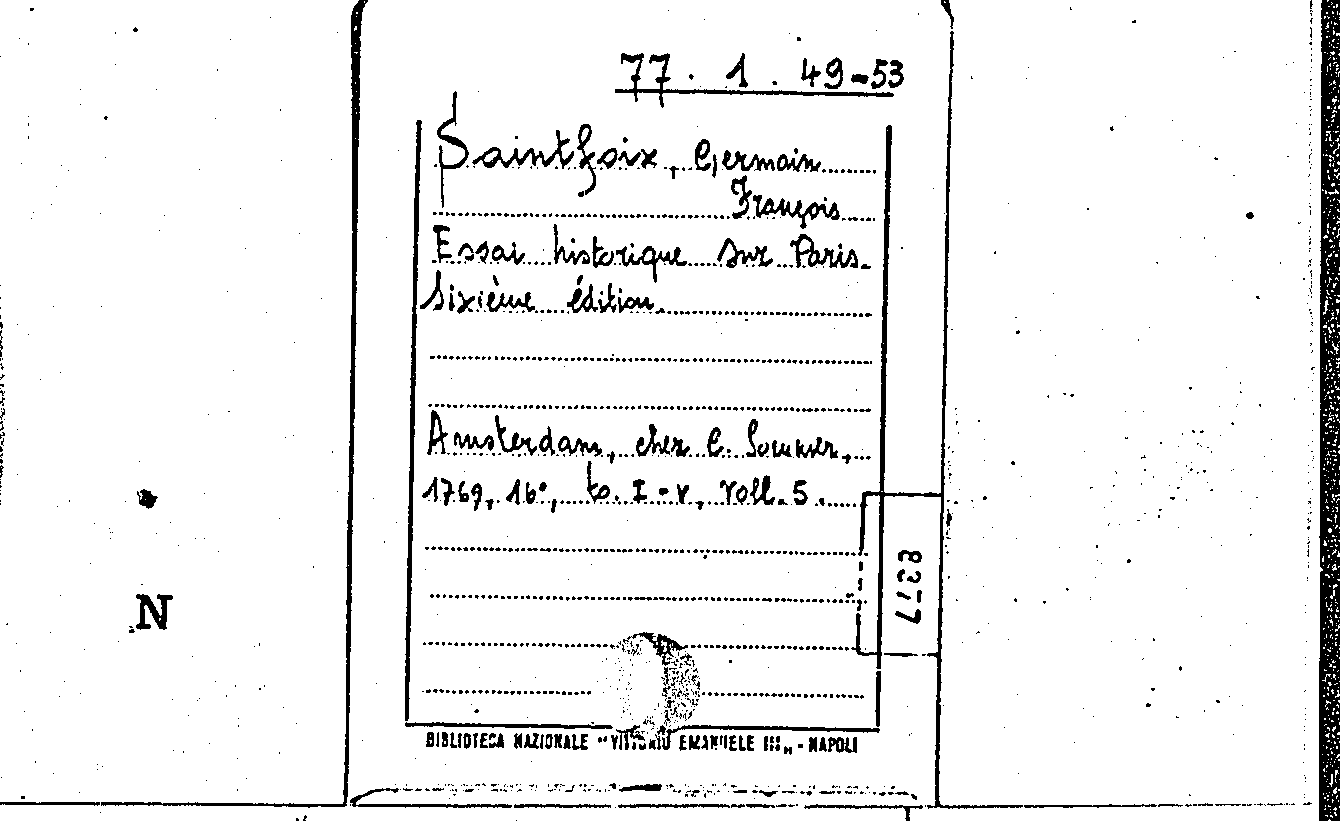 77. 1. 49-53
Saintfoix, Germain
François
Essai historique sur Paris.
Sixième édition.
Amsterdam, chez C. Sommer,
1769, 16°, to. I-V, voll. 5.
8377
N
BIBLIOTECA NAZIONALE "VITTORIO EMANUELE III" - NAPOLI